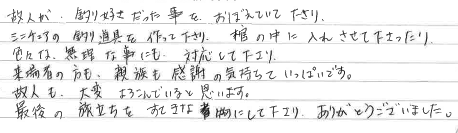 故人が、釣り好きだった事を、おぼえていて下さり、
ミニチュアの釣り道具を作って下さり、棺の中に入れさせて下さったり、
色々な、無理な事にも、対応して下さり、
来る者の方も、親族も感謝の気持ちでいっぱいです。
故人も、大変よろこんでいると思います。
最後の旅立ちをすてきな物にして下さり、ありがとうございました。